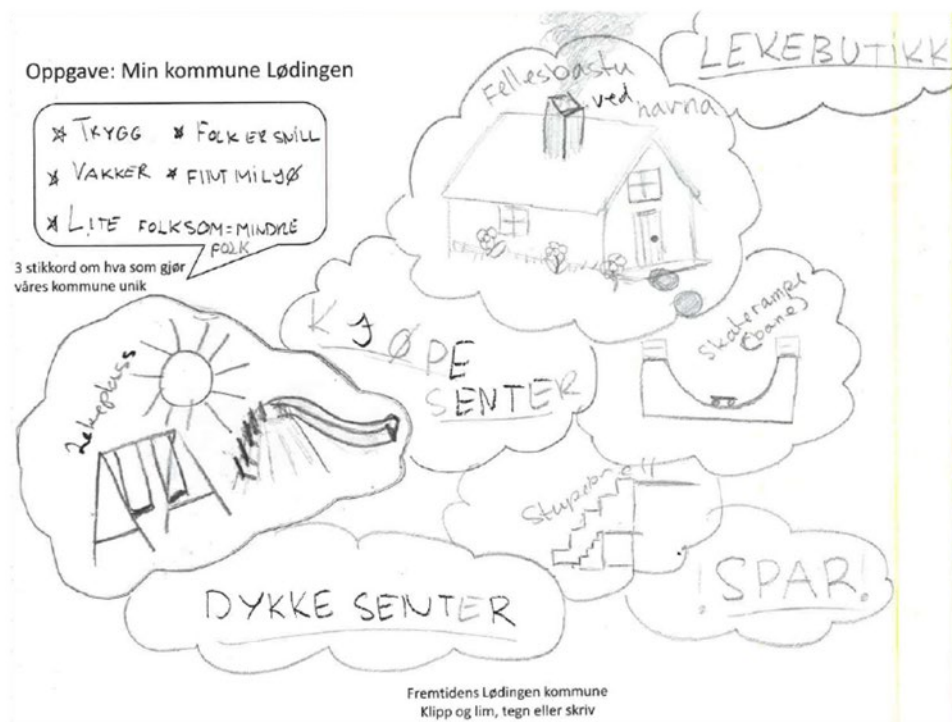 Oppgave: Min kommune Lødingen
* TRYGG * FOLK ER SNILL
* VAKKER * FINT MILJØ
* LITE FOLKSOM = MINDRE
FOLK
3 stikkord om hva som gjør
våres kommune unik
LEKEBUTIKK
Fellesbastu
ved havna
KJØPE
SENTER
Skaterampe
(bane)
Lekeplass
Stupebrett
DYKKE SENTER
!SPAR!
Fremtidens Lødingen kommune
Klipp og lim, tegn eller skriv